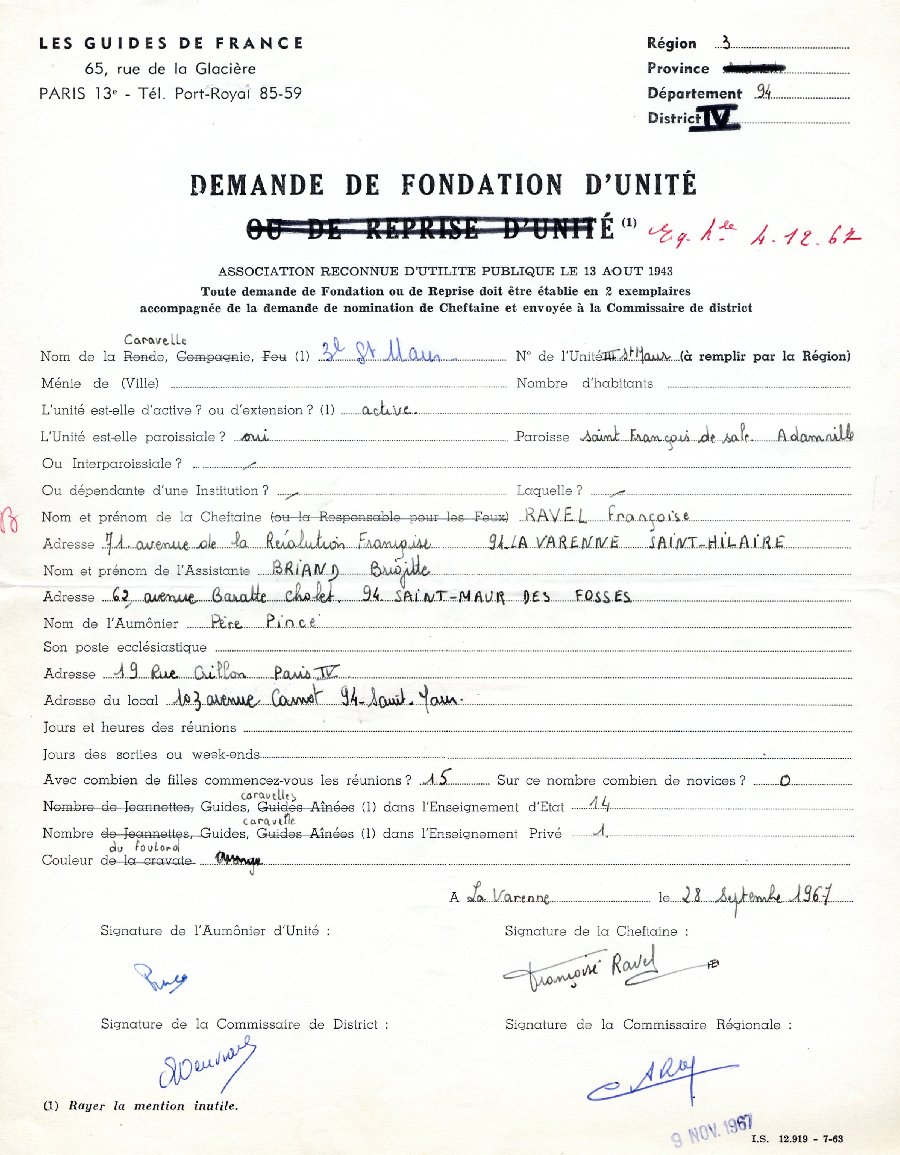 LES GUIDES DE FRANCE
65, rue de la Glacière
PARIS 13e - Tél. Port-Royal 85-59
Région 3
Province
Département 94
District IV
DEMANDE DE FONDATION D'UNITÉ
OU DE REPRISE D'UNITÉ (1)
4.12.67
ASSOCIATION RECONNUE D'UTILITE PUBLIQUE LE 13 AOUT 1943
Toute demande de Fondation ou de Reprise doit être établie en 2 exemplaires
accompagnée de la demande de nomination de Cheftaine et envoyée à la Commissaire de district
Caravelle
Nom de la Ronde, Compagnie, Feu (1) 3e St Maur N° de l'Unité III St Maur (à remplir par la Région)
Ménie de (Ville) Nombre d'habitants
L'unité est-elle d'active ? ou d'extension ? (1) active.
L'Unité est-elle paroissiale ? oui Paroisse Saint François de sale. Adamville
Ou Interparoissiale ? /
Ou dépendante d'une Institution ? / Laquelle ? /
B
Nom et prénom de la Cheftaine (ou la Responsable pour les Feux) RAVEL Françoise
Adresse 71 avenue de la Révolution Française 94 LA VARENNE SAINT-HILAIRE
Nom et prénom de l'Assistante BRIAND Brigitte
Adresse 62 avenue Baratte Cholet. 94. SAINT-MAUR DES FOSSES
Nom de l'Aumônier Père Pincé
Son poste ecclésiastique
Adresse 19 Rue Crillon Paris IV
Adresse du local 103 avenue Carnot 94-Saint-Maur.
Jours et heures des réunions
Jours des sorties ou week-ends
Avec combien de filles commencez-vous les réunions ? 15 Sur ce nombre combien de novices ? 0
caravelles
Nombre de Jeannettes, Guides, Guides Aînées (1) dans l'Enseignement d'Etat 14
caravelle
Nombre de Jeannettes, Guides, Guides Aînées (1) dans l'Enseignement Privé 1.
du foulard
Couleur de la cravate orange
A La Varenne le 28 Septembre 1967
Signature de l'Aumônier d'Unité :
Signature de la Cheftaine :
Pincé
Françoise Ravel
Signature de la Commissaire de District :
Signature de la Commissaire Régionale :
(1) Rayer la mention inutile.
9 NOV. 1967
I.S. 12.919 - 7-63